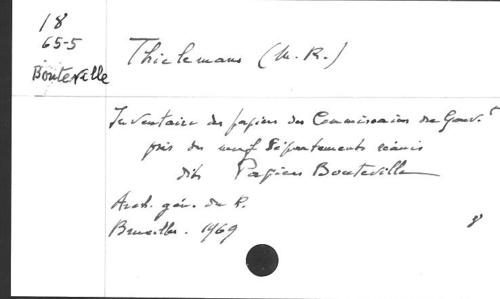 18
65-5
Bouteville
Thielemans (M. R.)
Inventaire des papiers des Commissaires du Gouv.t
près des neuf Départements réunis
dits Papiers Bouteville
Arch. gén. du R.
Bruxelles. 1969
8